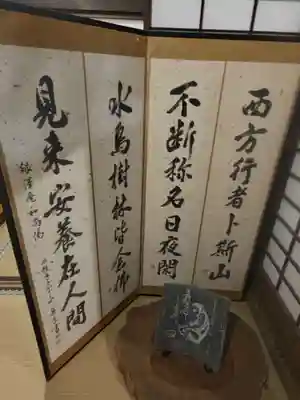 西方行者卜斯山
不断称名日夜閑
水鳥樹林皆念仏
見来安養在人間